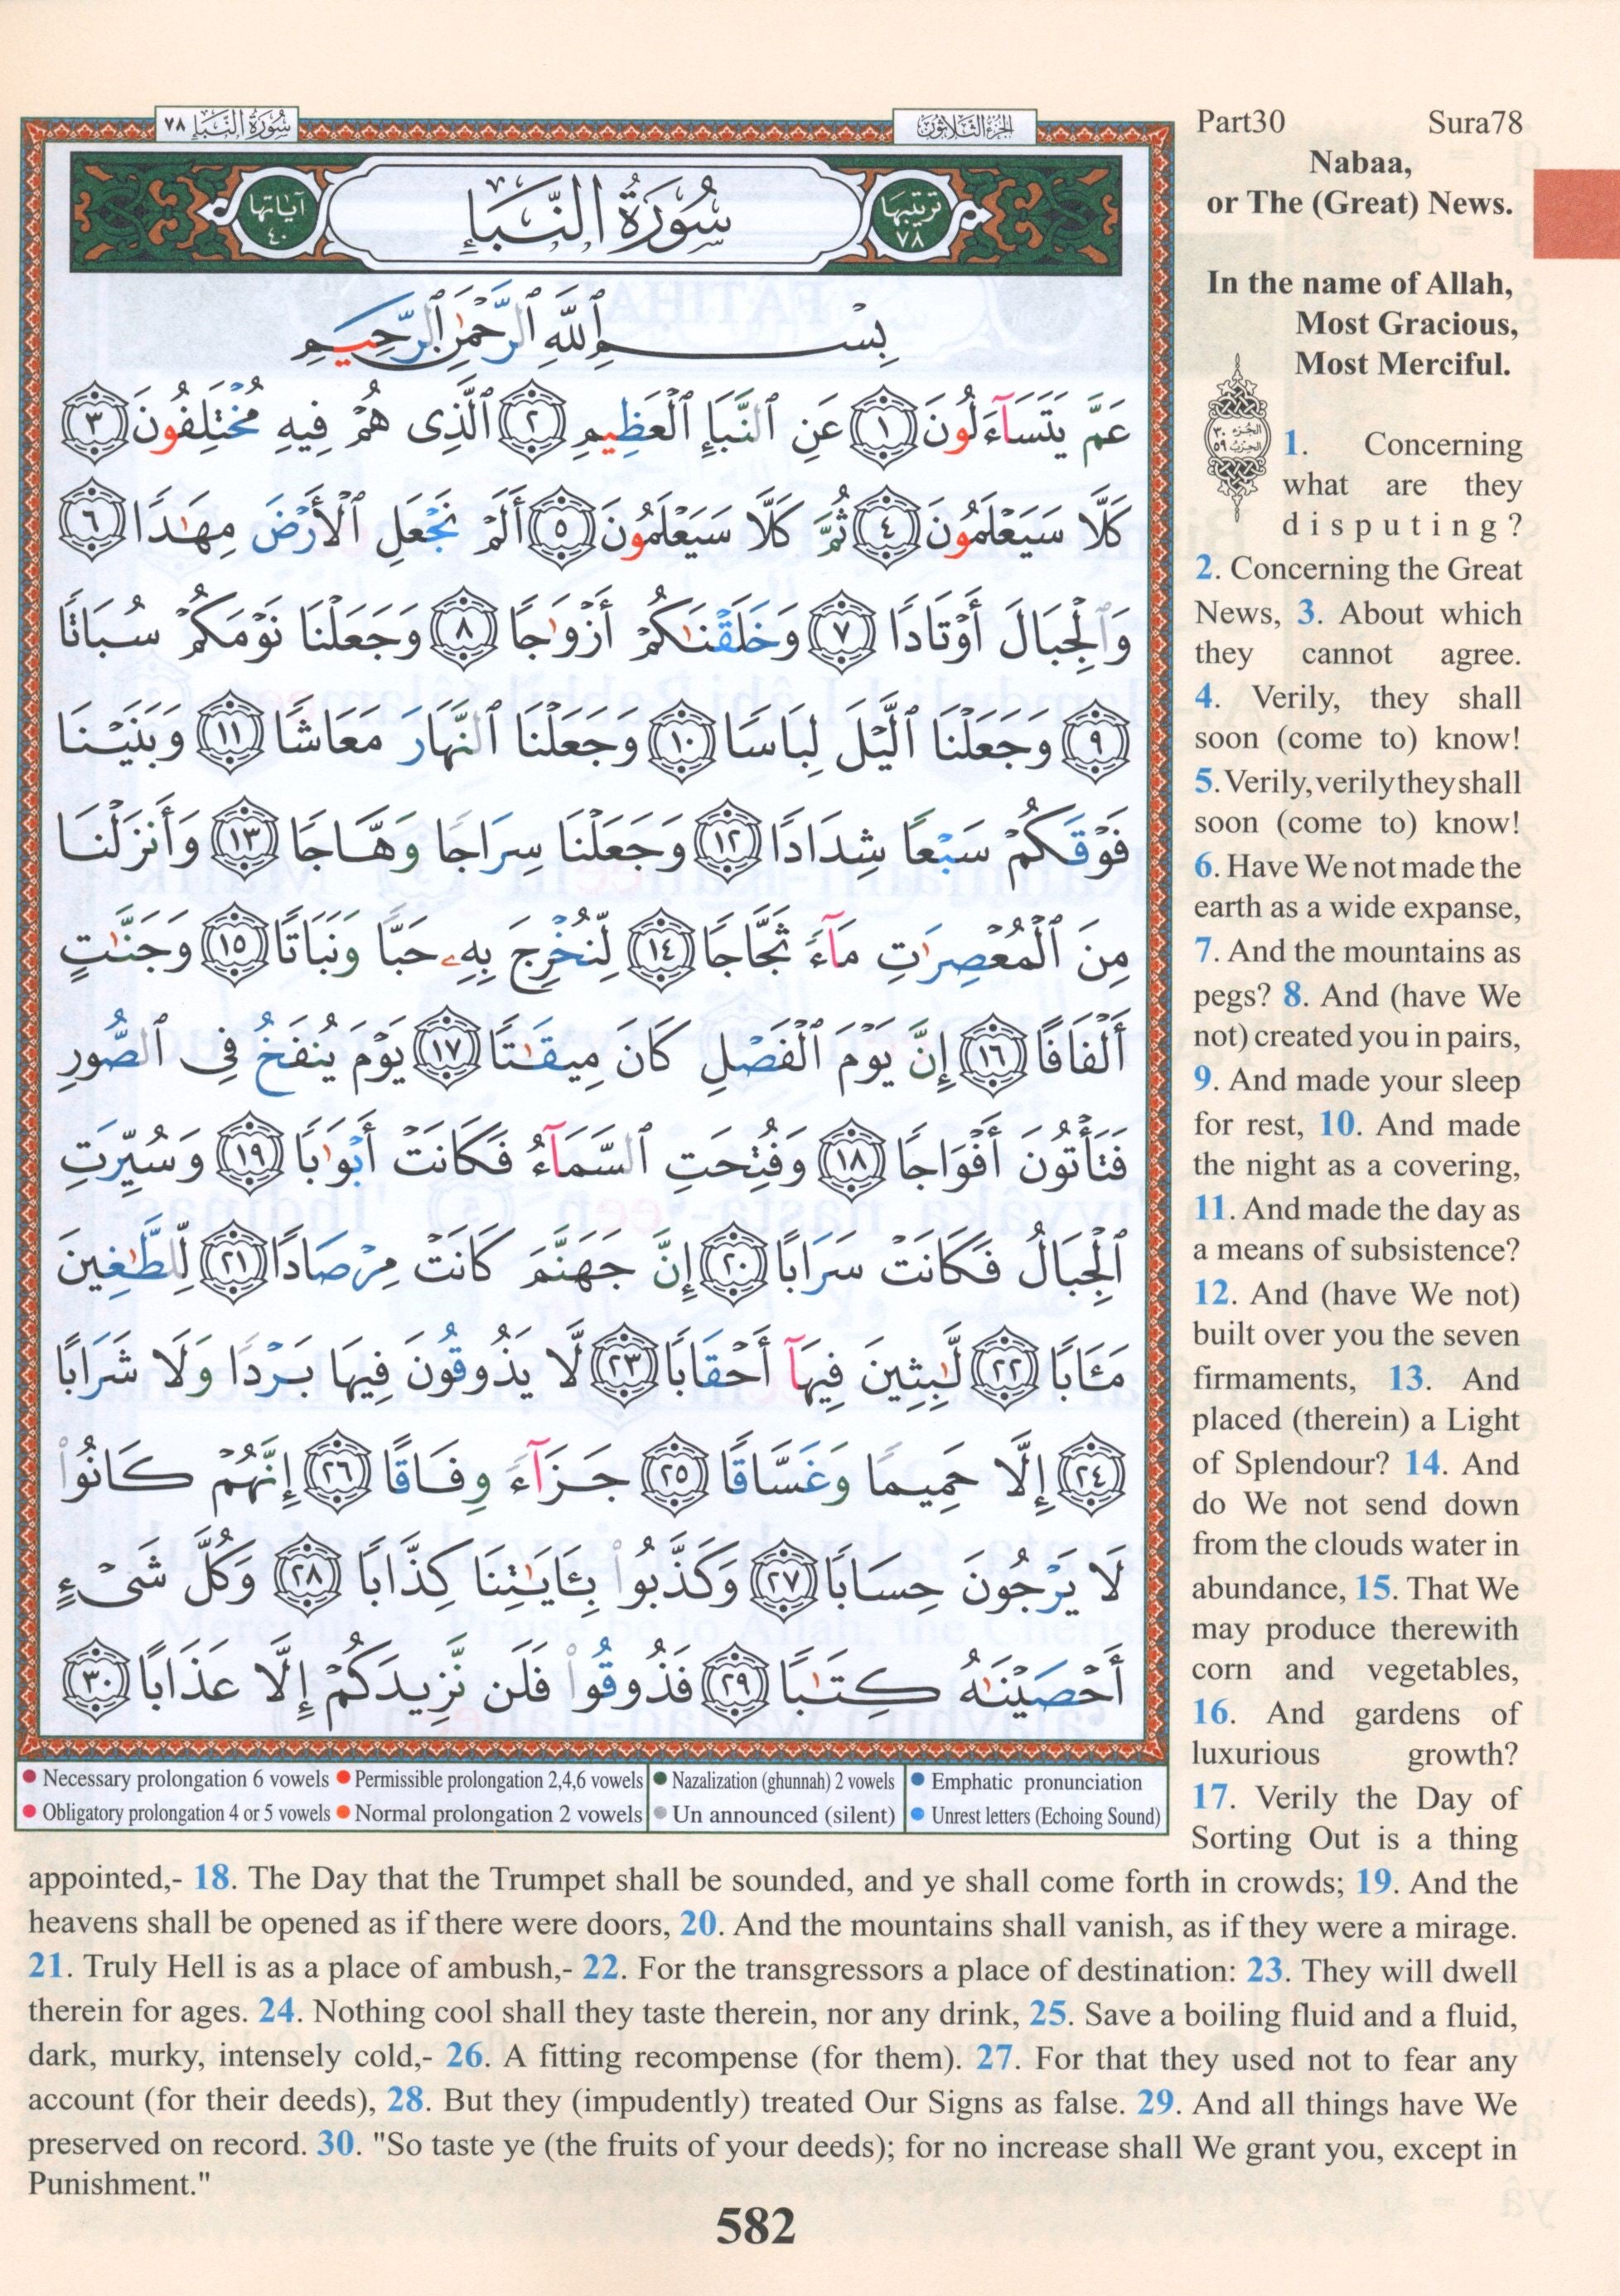 سُورَةُ النَّبَإِ ٧٨
الجُزءُ الثَّلَاثُونَ
Part30 Sura78
آيَاتُهَا ٤٠
سُورَةُ النَّبَإِ
تَرتِيبُهَا ٧٨
بِسْمِ ٱللَّهِ ٱلرَّحْمَٰنِ ٱلرَّحِيمِ
عَمَّ يَتَسَآءَلُونَ ١ عَنِ ٱلنَّبَإِ ٱلْعَظِيمِ ٢ ٱلَّذِى هُمْ فِيهِ مُخْتَلِفُونَ ٣
كَلَّا سَيَعْلَمُونَ ٤ ثُمَّ كَلَّا سَيَعْلَمُونَ ٥ أَلَمْ نَجْعَلِ ٱلْأَرْضَ مِهَٰدًا ٦
وَٱلْجِبَالَ أَوْتَادًا ٧ وَخَلَقْنَٰكُمْ أَزْوَٰجًا ٨ وَجَعَلْنَا نَوْمَكُمْ سُبَاتًا
٩ وَجَعَلْنَا ٱلَّيْلَ لِبَاسًا ١٠ وَجَعَلْنَا ٱلنَّهَارَ مَعَاشًا ١١ وَبَنَيْنَا
فَوْقَكُمْ سَبْعًا شِدَادًا ١٢ وَجَعَلْنَا سِرَاجًا وَهَّاجًا ١٣ وَأَنزَلْنَا
مِنَ ٱلْمُعْصِرَٰتِ مَآءً ثَجَّاجًا ١٤ لِّنُخْرِجَ بِهِۦ حَبًّا وَنَبَاتًا ١٥ وَجَنَّٰتٍ
أَلْفَافًا ١٦ إِنَّ يَوْمَ ٱلْفَصْلِ كَانَ مِيقَٰتًا ١٧ يَوْمَ يُنفَخُ فِى ٱلصُّورِ
فَتَأْتُونَ أَفْوَاجًا ١٨ وَفُتِحَتِ ٱلسَّمَآءُ فَكَانَتْ أَبْوَٰبًا ١٩ وَسُيِّرَتِ
ٱلْجِبَالُ فَكَانَتْ سَرَابًا ٢٠ إِنَّ جَهَنَّمَ كَانَتْ مِرْصَادًا ٢١ لِّلطَّٰغِينَ
مَـَٔابًا ٢٢ لَّٰبِثِينَ فِيهَآ أَحْقَابًا ٢٣ لَّا يَذُوقُونَ فِيهَا بَرْدًا وَلَا شَرَابًا
٢٤ إِلَّا حَمِيمًا وَغَسَّاقًا ٢٥ جَزَآءً وِفَاقًا ٢٦ إِنَّهُمْ كَانُوا۟
لَا يَرْجُونَ حِسَابًا ٢٧ وَكَذَّبُوا۟ بِـَٔايَٰتِنَا كِذَّابًا ٢٨ وَكُلَّ شَىْءٍ
أَحْصَيْنَٰهُ كِتَٰبًا ٢٩ فَذُوقُوا۟ فَلَن نَّزِيدَكُمْ إِلَّا عَذَابًا ٣٠
Necessary prolongation 6 vowels Permissible prolongation 2,4,6 vowels Nazalization (ghunnah) 2 vowels Emphatic pronunciation
Obligatory prolongation 4 or 5 vowels Normal prolongation 2 vowels Un announced (silent) Unrest letters (Echoing Sound)
Nabaa,
or The (Great) News.
In the name of Allah,
Most Gracious,
Most Merciful.
الجزء ٣٠
الحزب ٥٩
1. Concerning
what are they
disputing?
2. Concerning the Great
News, 3. About which
they cannot agree.
4. Verily, they shall
soon (come to) know!
5. Verily, verily they shall
soon (come to) know!
6. Have We not made the
earth as a wide expanse,
7. And the mountains as
pegs? 8. And (have We
not) created you in pairs,
9. And made your sleep
for rest, 10. And made
the night as a covering,
11. And made the day as
a means of subsistence?
12. And (have We not)
built over you the seven
firmaments, 13. And
placed (therein) a Light
of Splendour? 14. And
do We not send down
from the clouds water in
abundance, 15. That We
may produce therewith
corn and vegetables,
16. And gardens of
luxurious growth?
17. Verily the Day of
Sorting Out is a thing
appointed,- 18. The Day that the Trumpet shall be sounded, and ye shall come forth in crowds; 19. And the
heavens shall be opened as if there were doors, 20. And the mountains shall vanish, as if they were a mirage.
21. Truly Hell is as a place of ambush,- 22. For the transgressors a place of destination: 23. They will dwell
therein for ages. 24. Nothing cool shall they taste therein, nor any drink, 25. Save a boiling fluid and a fluid,
dark, murky, intensely cold,- 26. A fitting recompense (for them). 27. For that they used not to fear any
account (for their deeds), 28. But they (impudently) treated Our Signs as false. 29. And all things have We
preserved on record. 30. "So taste ye (the fruits of your deeds); for no increase shall We grant you, except in
Punishment."
582